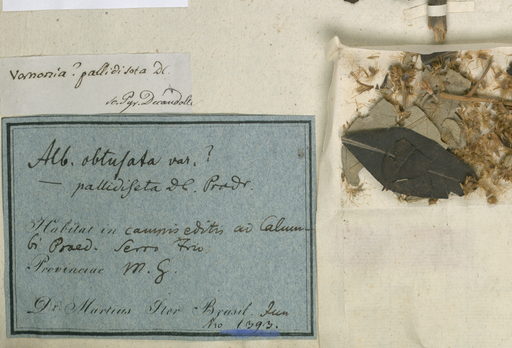 Vernonia? pallidiseta DC.
sc. Pyr. Decandolle
Alb. obtusata var.?
— pallidiseta DC. Prodr.
Habitat in campis editis ad Calum-
bi Praed. Serro Frio
Provinciae M. G.
Dr. Martius Iter Brasil. Jun
No 1393.